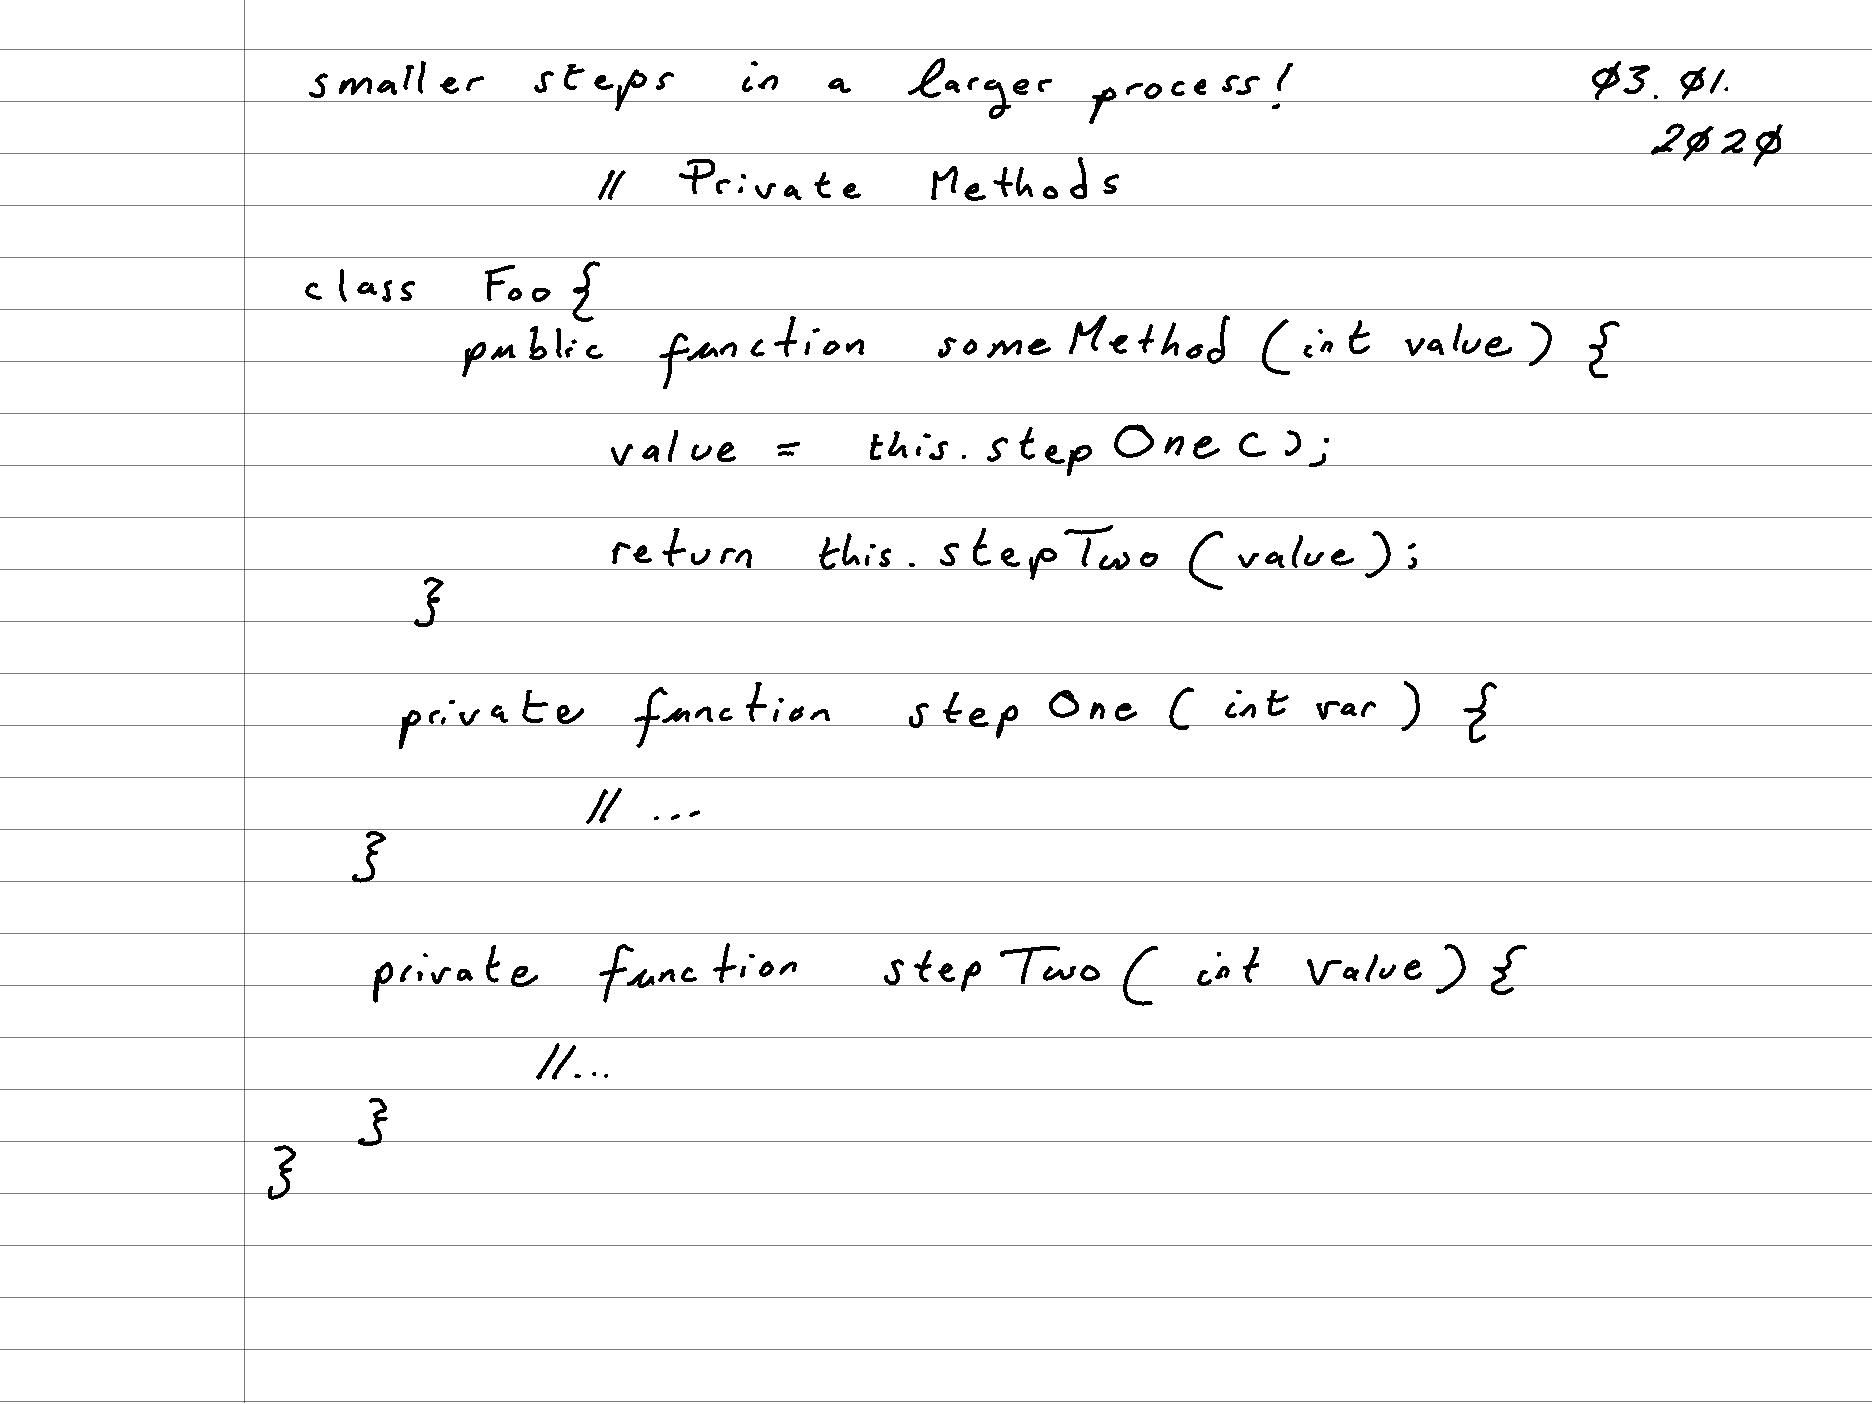 smaller steps in a larger process! Ø3.Ø1.
2Ø2Ø
// Private Methods
class Foo {
public function someMethod (int value) {
value = this.stepOne();
return this.stepTwo (value);
}
private function stepOne (int var) {
// ...
}
private function stepTwo ( int value) {
//...
}
}